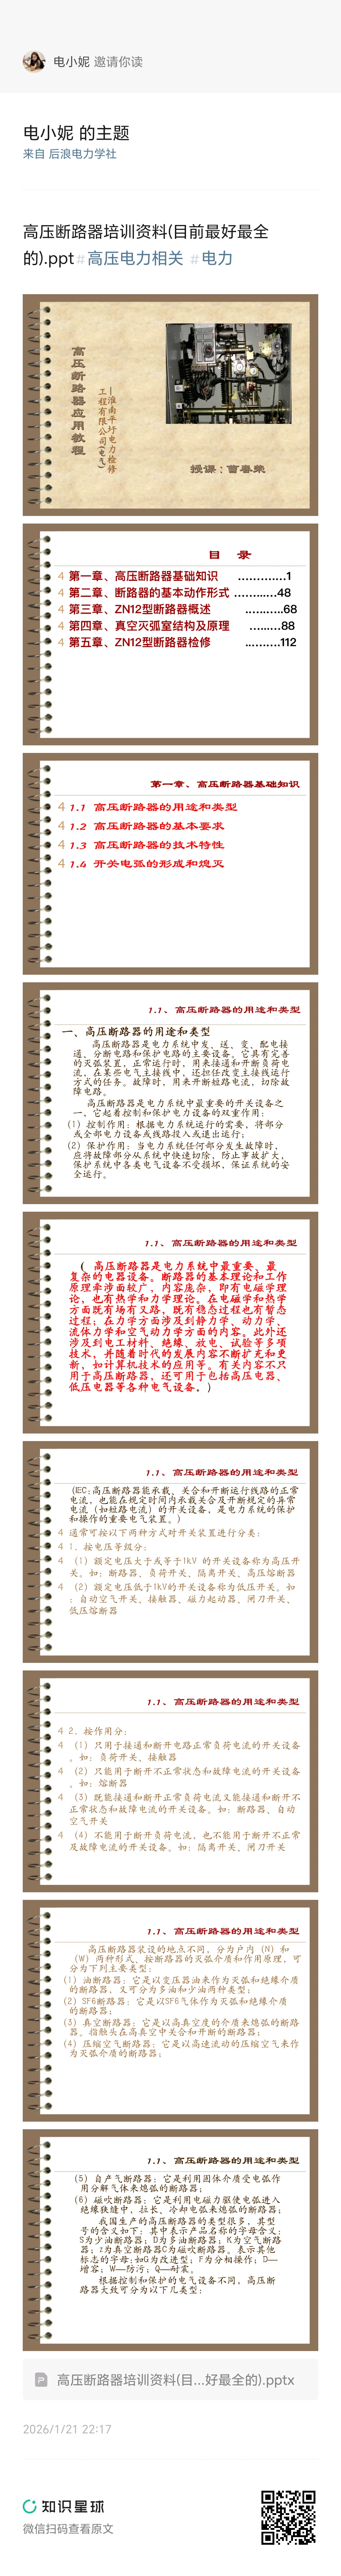 电小妮 邀请你读
电小妮 的主题
来自 后浪电力学社
高压断路器培训资料(目前最好最全
的).ppt#高压电力相关 #电力
高压断路器应用教程
—淮南平圩电力检修
工程有限公司(电气)
授课：曹春荣
目 录
4 第一章、高压断路器基础知识 …………1
4 第二章、断路器的基本动作形式 …………48
4 第三章、ZN12型断路器概述 …………68
4 第四章、真空灭弧室结构及原理 ………88
4 第五章、ZN12型断路器检修 …………112
第一章、高压断路器基础知识
4 1.1 高压断路器的用途和类型
4 1.2 高压断路器的基本要求
4 1.3 高压断路器的技术特性
4 1.4 开关电弧的形成和熄灭
1.1、高压断路器的用途和类型
一、高压断路器的用途和类型
高压断路器是电力系统中发、送、变、配电接
通、分断电路和保护电路的主要设备。它具有完善
的灭弧装置，正常运行时，用来接通和开断负荷电
流，在某些电气主接线中，还担任改变主接线运行
方式的任务。故障时，用来开断短路电流，切除故
障电路。
高压断路器是电力系统中最重要的开关设备之
一，它起着控制和保护电力设备的双重作用：
(1）控制作用：根据电力系统运行的需要，将部分
或全部电力设备或线路投入或退出运行；
(2）保护作用：当电力系统任何部分发生故障时，
应将故障部分从系统中快速切除，防止事故扩大，
保护系统中各类电气设备不受损坏，保证系统的安
全运行。
1.1、高压断路器的用途和类型
( 高压断路器是电力系统中最重要、最
复杂的电器设备。断路器的基本理论和工作
原理牵涉面较广，内容庞杂，即有电磁学理
论，也有热学和力学理论。在电磁学和热学
方面既有场有又路，既有稳态过程也有暂态
过程；在力学方面涉及到静力学、动力学、
流体力学和空气动力学方面的内容。此外还
涉及到电工材料、绝缘、放电、试验等多项
技术，并随着时代的发展内容不断扩充和更
新，如计算机技术的应用等。有关内容不只
用于高压断路器，还可用于包括高压电器、
低压电器等各种电气设备。)
1.1、高压断路器的用途和类型
(IEC:高压断路器能承载、关合和开断运行线路的正常
电流，也能在规定时间内承载关合及开断规定的异常
电流（如短路电流）的开关设备，是电力系统的保护
和操作的重要电气装置。)
4 通常可按以下两种方式对开关装置进行分类：
4 1．按电压等级分：
4 （1）额定电压大于或等于1kV 的开关设备称为高压开
关。如：断路器、负荷开关、隔离开关、高压熔断器
4 （2）额定电压低于1kV的开关设备称为低压开关。如
：自动空气开关、接触器、磁力起动器、闸刀开关、
低压熔断器
1.1、高压断路器的用途和类型
4 2．按作用分：
4 （1）只用于接通和断开电路正常负荷电流的开关设备
。如：负荷开关、接触器
4 （2）只能用于断开不正常状态和故障电流的开关设备
。如：熔断器
4 （3）既能接通和断开正常负荷电流又能接通和断开不
正常状态和故障电流的开关设备。如：断路器、自动
空气开关
4 （4）不能用于断开负荷电流，也不能用于断开不正常
及故障电流的开关设备。如：隔离开关、闸刀开关
1.1、高压断路器的用途和类型
高压断路器装设的地点不同，分为户内（N）和
（W）两种形式，按断路器的灭弧介质和作用原理，可
分为下列主要类型：
(1）油断路器：它是以变压器油来作为灭弧和绝缘介质
的断路器，又可分为多油和少油两种类型；
(2）SF6断路器：它是以SF6气体作为灭弧和绝缘介质
的断路器；
(3）真空断路器：它是以高真空度的介质来熄弧的断路
器。指触头在高真空中关合和开断的断路器；
(4）压缩空气断路器：它是以高速流动的压缩空气来作
为灭弧介质的断路器；
1.1、高压断路器的用途和类型
(5）自产气断路器：它是利用固体介质受电弧作
用分解气体来熄弧的断路器；
(6）磁吹断路器：它是利用电磁力驱使电弧进入
绝缘狭缝中，拉长、冷却电弧来熄弧的断路器；
我国生产的高压断路器的类型很多，其型
号的含义如下：其中表示产品名称的字母含义：
S为少油断路器；D为多油断路器；K为空气断路
器；Z为真空断路器C为磁吹断路器。表示其他
标志的字母:如G为改进型；F为分相操作；D—
增容；W—防污；Q—耐震。
根据控制和保护的电气设备不同，高压断
路器大致可分为以下几类型：
高压断路器培训资料(目...好最全的).pptx
2026/1/21 22:17
知识星球
微信扫码查看原文